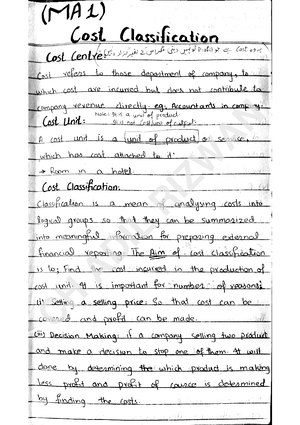 (MA1)
Cost Classification
Cost Centre:
Cost refers to those department of company, to
which cost are incurred but does not contribute to
company revenue directly. eg. Accountants in company.
Cost Unit: Note: It is a unit of product
It is not cost/unit of output.
A cost unit is a unit of product
which has cost attached to it.
→ Room in a hotel.
Cost Classification:
Classification is a mean analysing costs into
logical groups so that they can be summarized
into meaningful information for preparing external
financial reporting. The Aim of cost classification
is to; Find cost incurred in the production of
cost unit. It is important for number of reasons;
(i) Selling a selling price: So that cost can be
and profit can be made.
(ii) Decision Making: if a company selling two product
and make a decision to stop one of them. It will
done by determining the which product is making
less profit and profit of cource is determined
by finding the costs.